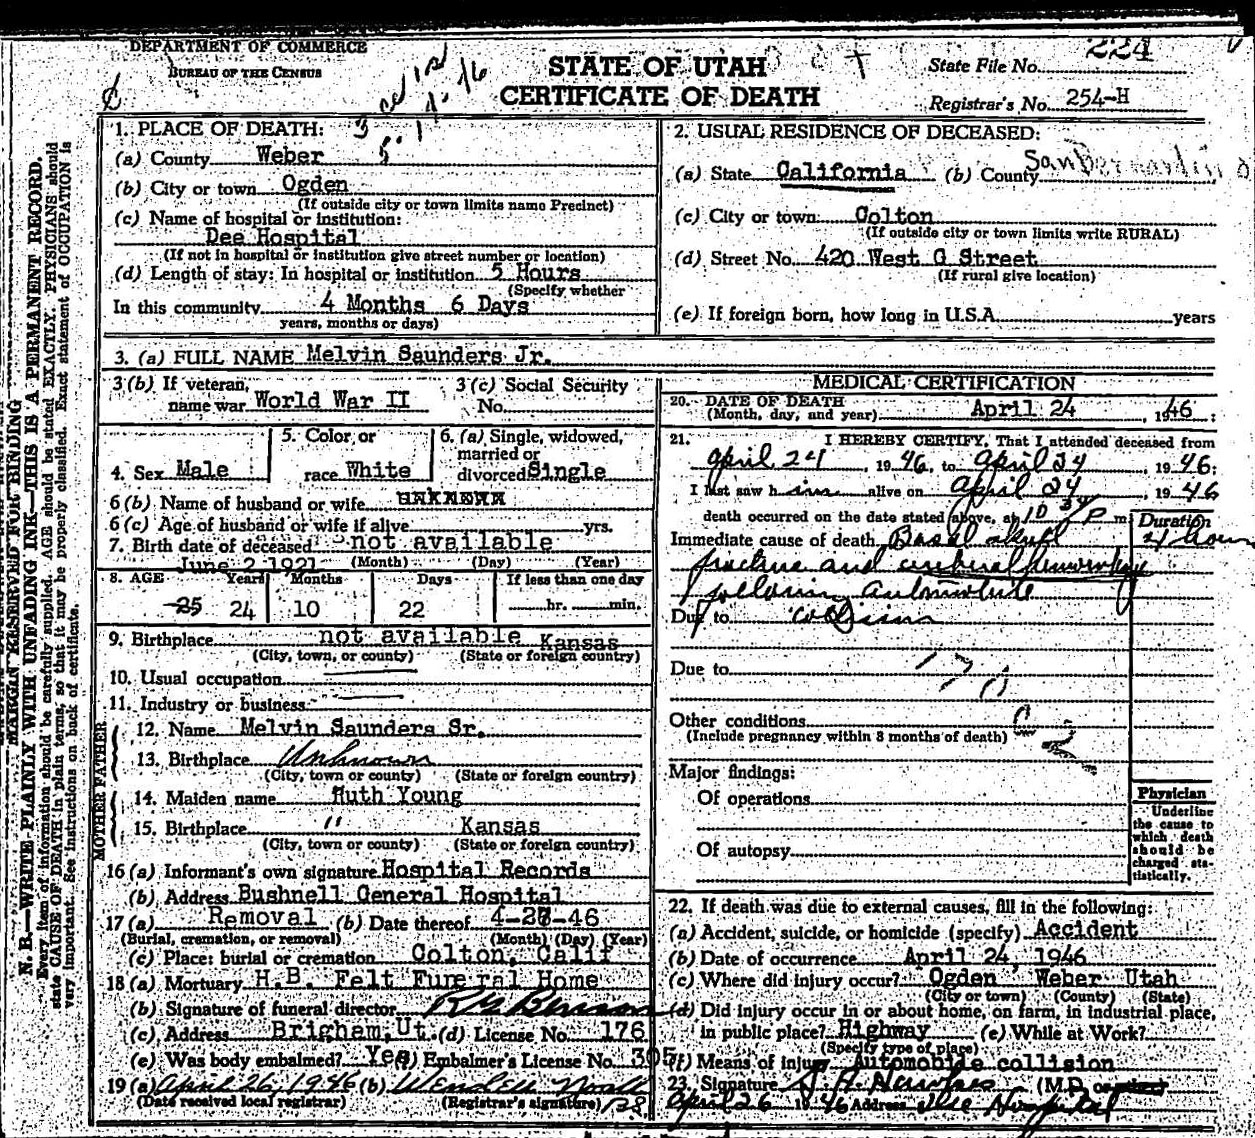 DEPARTMENT OF COMMERCE
BUREAU OF THE CENSUS
STATE OF UTAH
CERTIFICATE OF DEATH
State File No. 224
Registrar's No. 254-H
N. B.—WRITE PLAINLY WITH UNFADING INK—THIS IS A PERMANENT RECORD.
MARGIN RESERVED FOR BINDING
Every item of information should be carefully supplied. AGE should be stated EXACTLY. PHYSICIANS should
state CAUSE OF DEATH in plain terms, so that it may be properly classified. Exact statement of OCCUPATION is
very important. See instructions on back of certificate.
1. PLACE OF DEATH:
(a) County Weber
(b) City or town Ogden
(If outside city or town limits name Precinct)
(c) Name of hospital or institution:
Dee Hospital
(If not in hospital or institution give street number or location)
(d) Length of stay: In hospital or institution 5 Hours
(Specify whether
In this community 4 Months 6 Days
years, months or days)
2. USUAL RESIDENCE OF DECEASED:
(a) State California (b) County San Bernardino
(c) City or town Colton
(If outside city or town limits write RURAL)
(d) Street No. 420 West G Street
(If rural give location)
(e) If foreign born, how long in U.S.A. years
3. (a) FULL NAME Melvin Saunders Jr.
3 (b) If veteran, name war World War II
3 (c) Social Security No.
4. Sex Male
5. Color or race White
6. (a) Single, widowed, married or divorced Single
6 (b) Name of husband or wife
6 (c) Age of husband or wife if alive yrs.
7. Birth date of deceased not available
June 2 1921 (Month) (Day) (Year)
8. AGE Years Months Days If less than one day
25 24 10 22 hr. min.
9. Birthplace not available Kansas
(City, town, or county) (State or foreign country)
10. Usual occupation
11. Industry or business
FATHER
12. Name Melvin Saunders Sr.
13. Birthplace Unknown
(City, town or county) (State or foreign country)
MOTHER
14. Maiden name Ruth Young
15. Birthplace " Kansas
(City, town or county) (State or foreign country)
16 (a) Informant's own signature Hospital Records
(b) Address Bushnell General Hospital
17 (a) Removal (b) Date thereof 4-27-46
(Burial, cremation, or removal) (Month) (Day) (Year)
(c) Place: burial or cremation Colton, Calif
18 (a) Mortuary H.B. Felt Funeral Home
(b) Signature of funeral director
(c) Address Brigham, Ut. (d) License No. 176
(e) Was body embalmed? Yes (f) Embalmer's License No. 305
19 (a) April 26, 1946 (b) Wendell Noall
(Date received local registrar) (Registrar's signature)
MEDICAL CERTIFICATION
20. DATE OF DEATH
(Month, day, and year) April 24, 1946
21. I HEREBY CERTIFY, That I attended deceased from
April 24, 1946, to April 24 1946;
I last saw him alive on April 24 1946
death occurred on the date stated above, at 10 P m.
Duration
Immediate cause of death Basal skull 4 hours
fracture and cerebral hemorrhage
following automobile
Due to collision
Due to
Other conditions
(Include pregnancy within 3 months of death)
Major findings:
Of operations
Of autopsy
Physician
Underline
the cause to
which death
should be
charged sta-
tistically.
22. If death was due to external causes, fill in the following:
(a) Accident, suicide, or homicide (specify) Accident
(b) Date of occurrence April 24, 1946
(c) Where did injury occur? Ogden Weber Utah
(City or town) (County) (State)
(d) Did injury occur in or about home, on farm, in industrial place,
in public place? Highway (e) While at Work?
(Specify type of place)
(f) Means of injury Automobile collision
23. Signature (M.D. or
April 26 1946 Address Dee Hospital